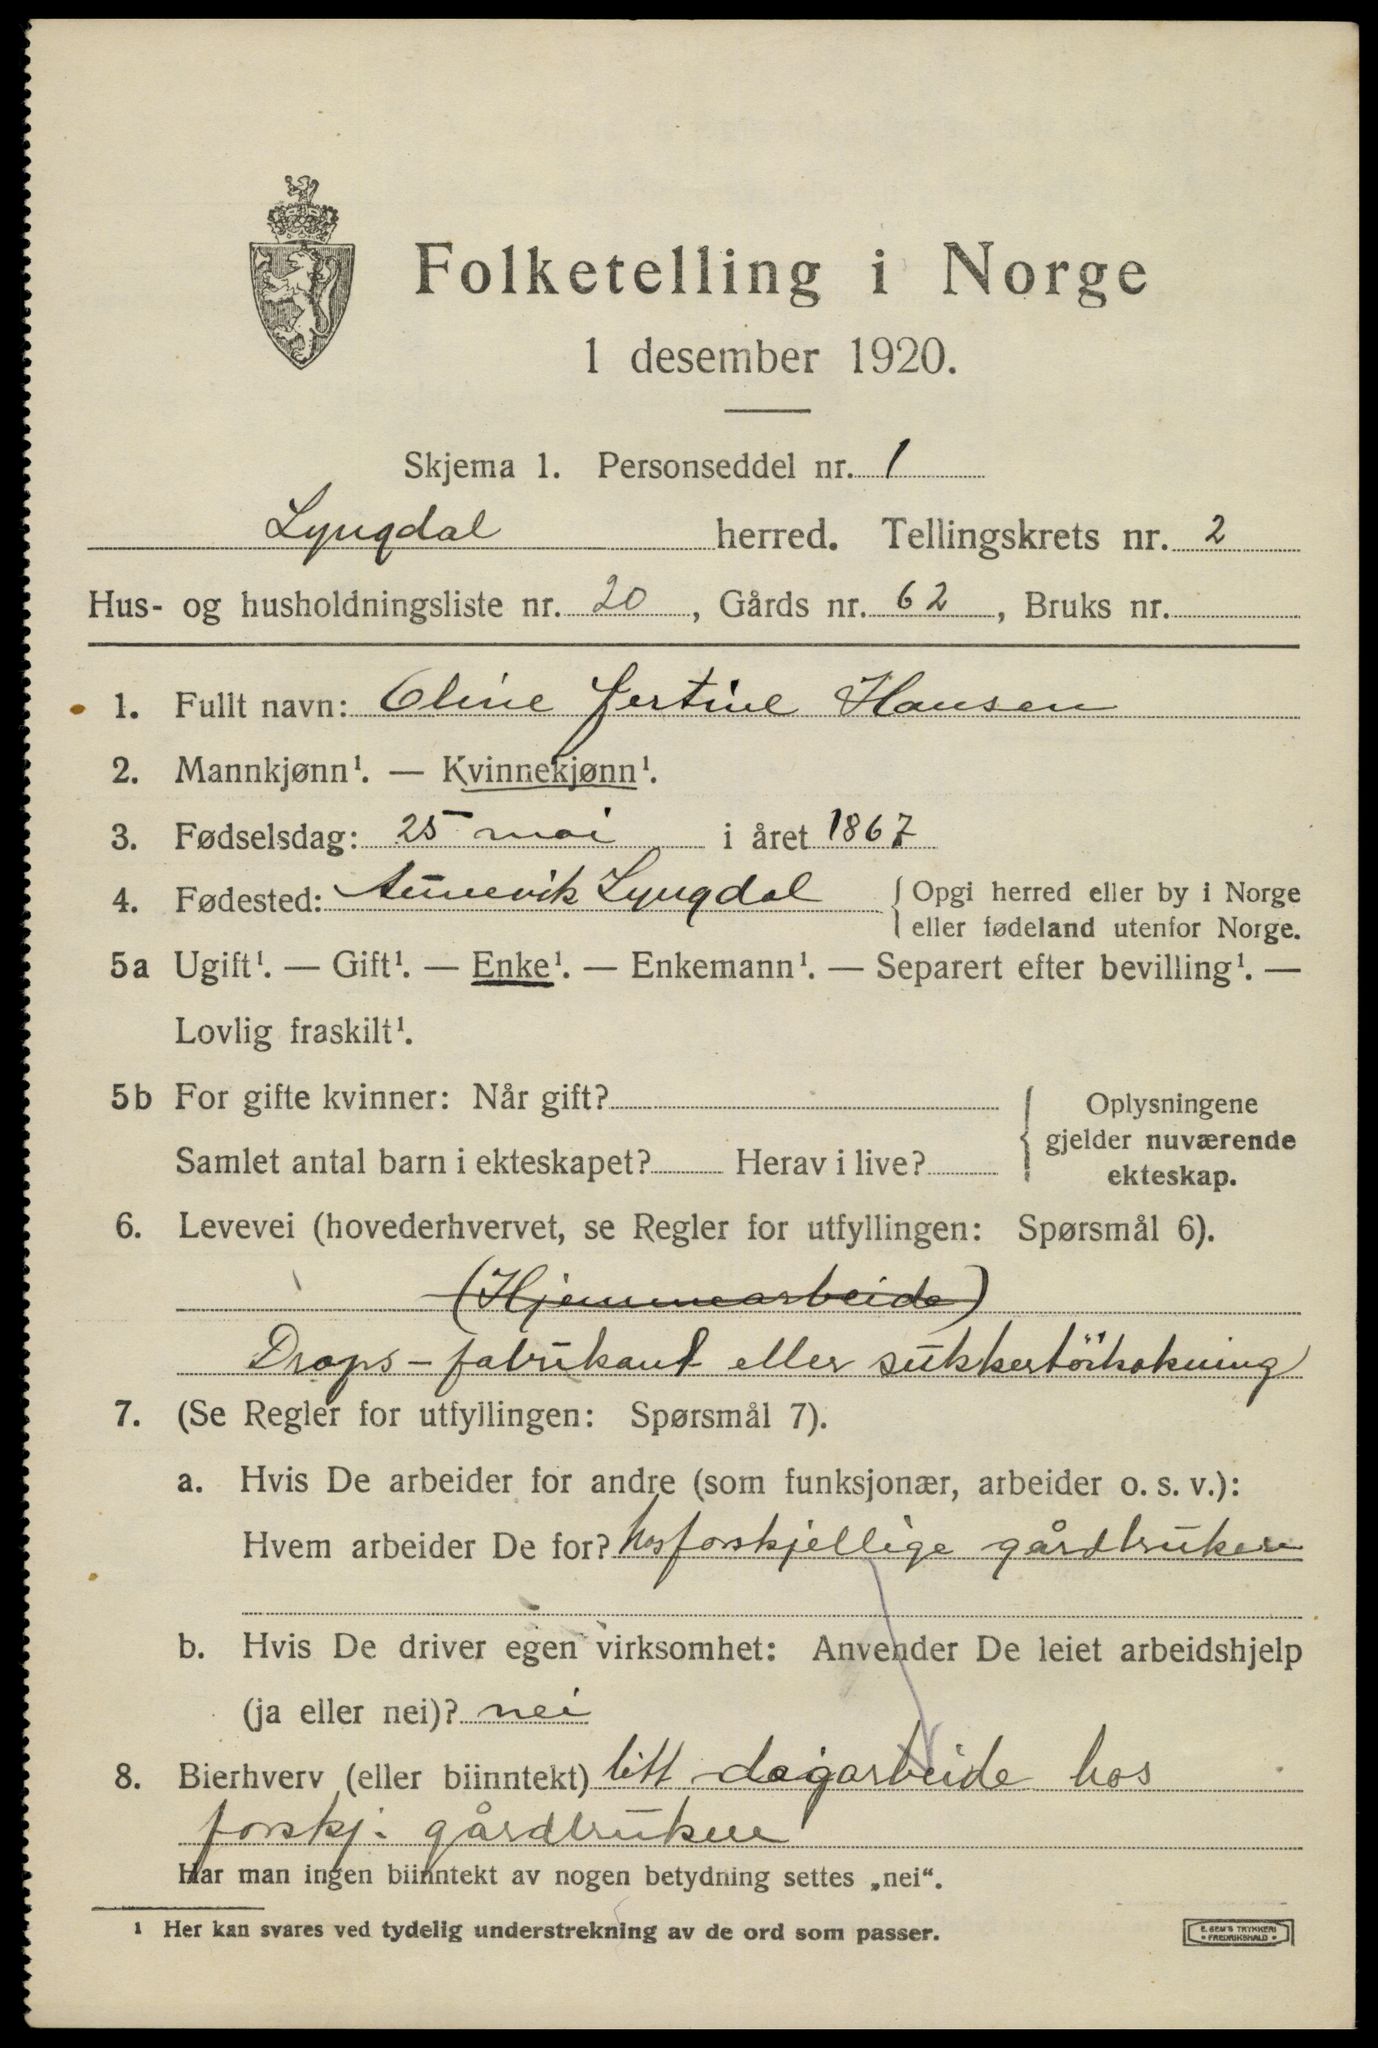 Folketelling i Norge
1 desember 1920.
Skjema 1. Personseddel nr. 1
Lyngdal herred. Tellingskrets nr. 2
Hus- og husholdningsliste nr. 20, Gårds nr. 62, Bruks nr.
1. Fullt navn: Oline Jertine Hansen
2. Mannkjønn¹. — Kvinnekjønn¹.
3. Fødselsdag: 25 mai i året 1867
4. Fødested: Aunevik Lyngdal { Opgi herred eller by i Norge
eller fødeland utenfor Norge.
5a Ugift¹. — Gift¹. — Enke¹. — Enkemann¹. — Separert efter bevilling¹. —
Lovlig fraskilt¹.
5b For gifte kvinner: Når gift?
Samlet antal barn i ekteskapet? Herav i live?
Oplysningene
gjelder nuværende
ekteskap.
6. Levevei (hovederhvervet, se Regler for utfyllingen: Spørsmål 6).
(Hjemmearbeide)
Drops-fabrikant eller sukkertöikokning
7. (Se Regler for utfyllingen: Spørsmål 7).
a. Hvis De arbeider for andre (som funksjonær, arbeider o. s. v.):
Hvem arbeider De for? hos forskjellige gårdbrukere
b. Hvis De driver egen virksomhet: Anvender De leiet arbeidshjelp
(ja eller nei)? nei
8. Bierhverv (eller biinntekt) litt dagarbeide hos
forskj. gårdbrukere
Har man ingen biinntekt av nogen betydning settes „nei“.
¹ Her kan svares ved tydelig understrekning av de ord som passer.
E. SEM'S TRYKKERI
• FREDRIKSHALD •